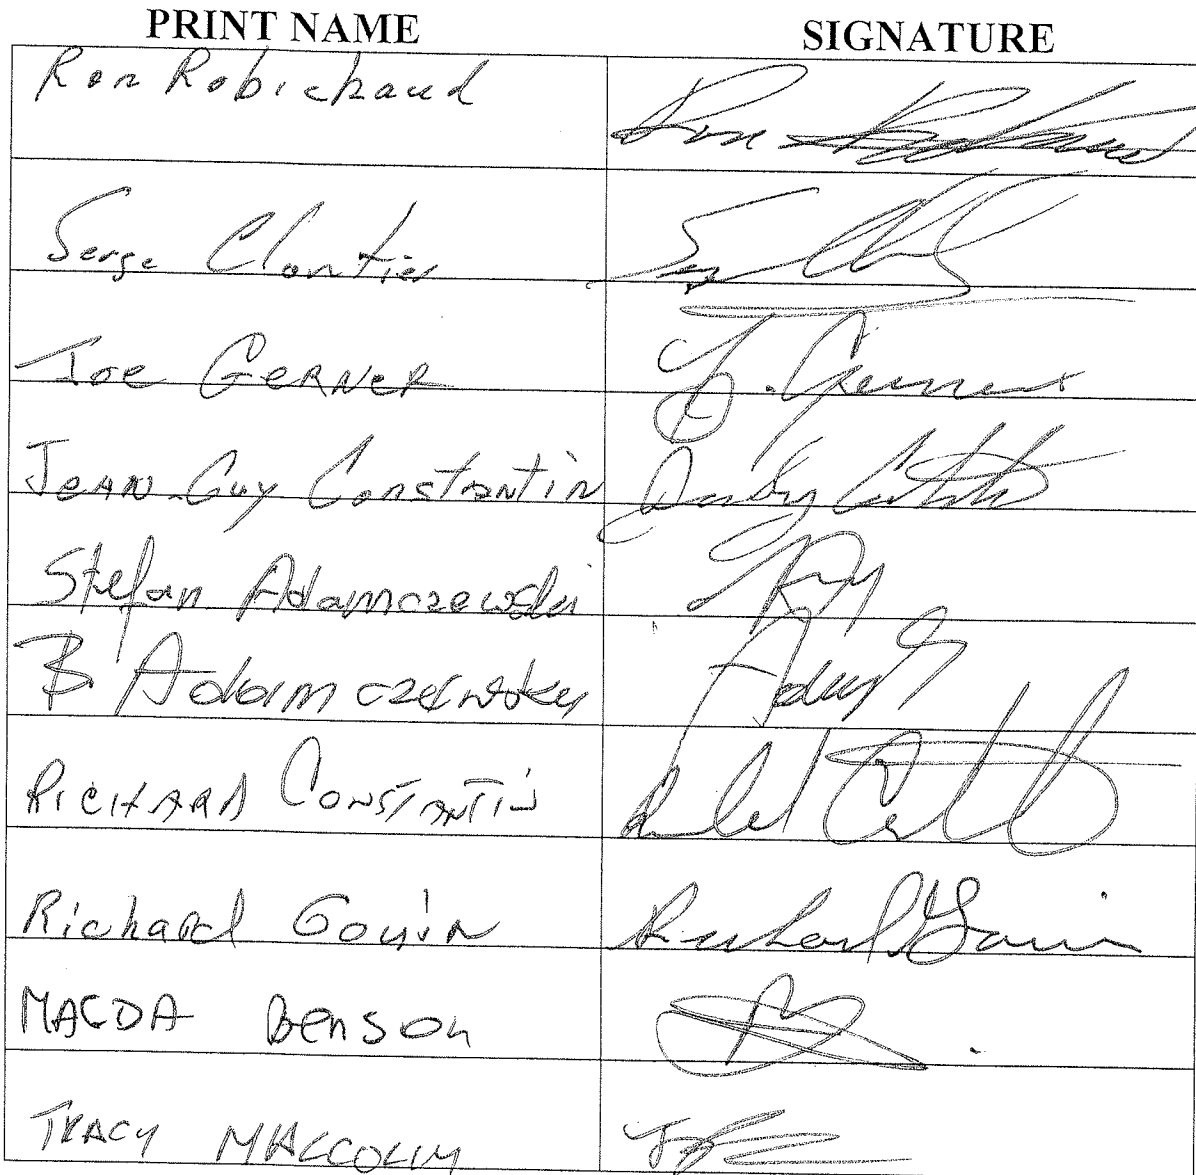 PRINT NAME SIGNATURE
Ron Robichaud Ron Robichaud
Serge Cloutier
Joe GERNER J. Gerner
JEAN-GUY Constantin
Stefan Adamczewski
B. Adamczewski
RICHARD CONSTANTIN
Richard Gouin Richard Gouin
MAGDA Benson
TRACY MALCOLM